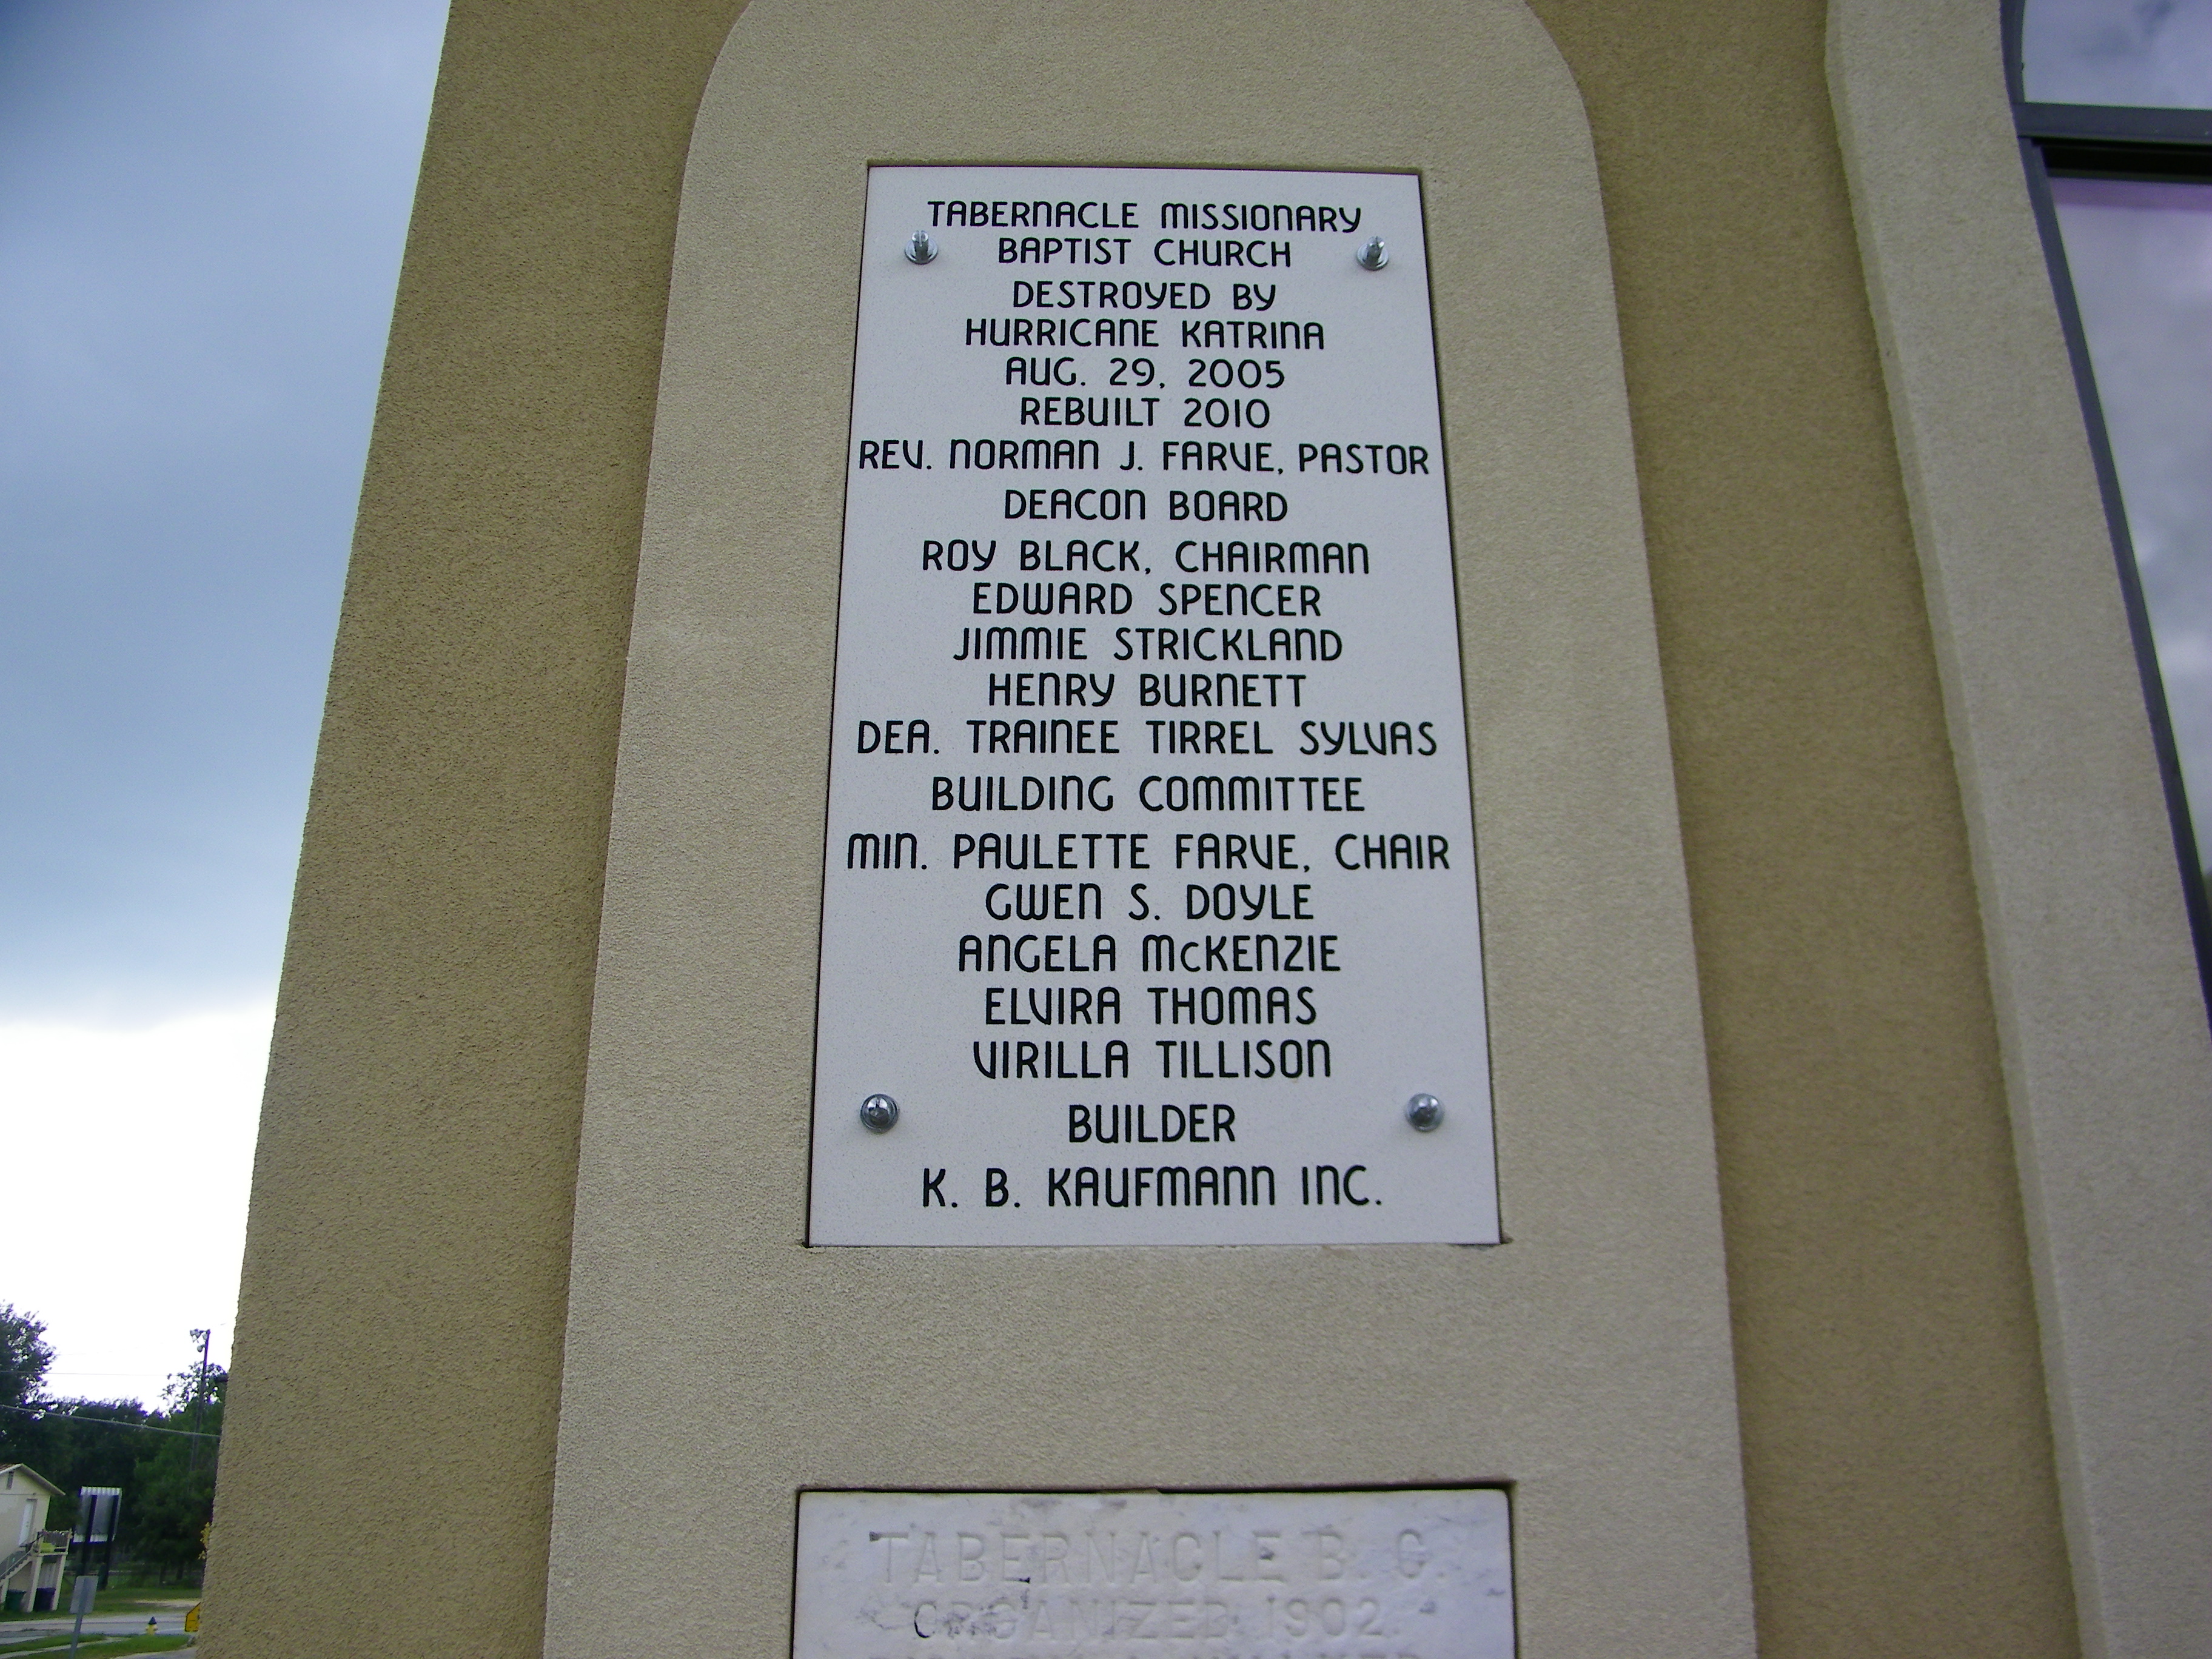 TABERNACLE MISSIONARY
BAPTIST CHURCH
DESTROYED BY
HURRICANE KATRINA
AUG. 29, 2005
REBUILT 2010
REV. NORMAN J. FARVE, PASTOR
DEACON BOARD
ROY BLACK, CHAIRMAN
EDWARD SPENCER
JIMMIE STRICKLAND
HENRY BURNETT
DEA. TRAINEE TIRREL SYLVAS
BUILDING COMMITTEE
MIN. PAULETTE FARVE, CHAIR
GWEN S. DOYLE
ANGELA McKENZIE
ELVIRA THOMAS
VIRILLA TILLISON
BUILDER
K. B. KAUFMANN INC.
TABERNACLE B. C.
ORGANIZED 1902